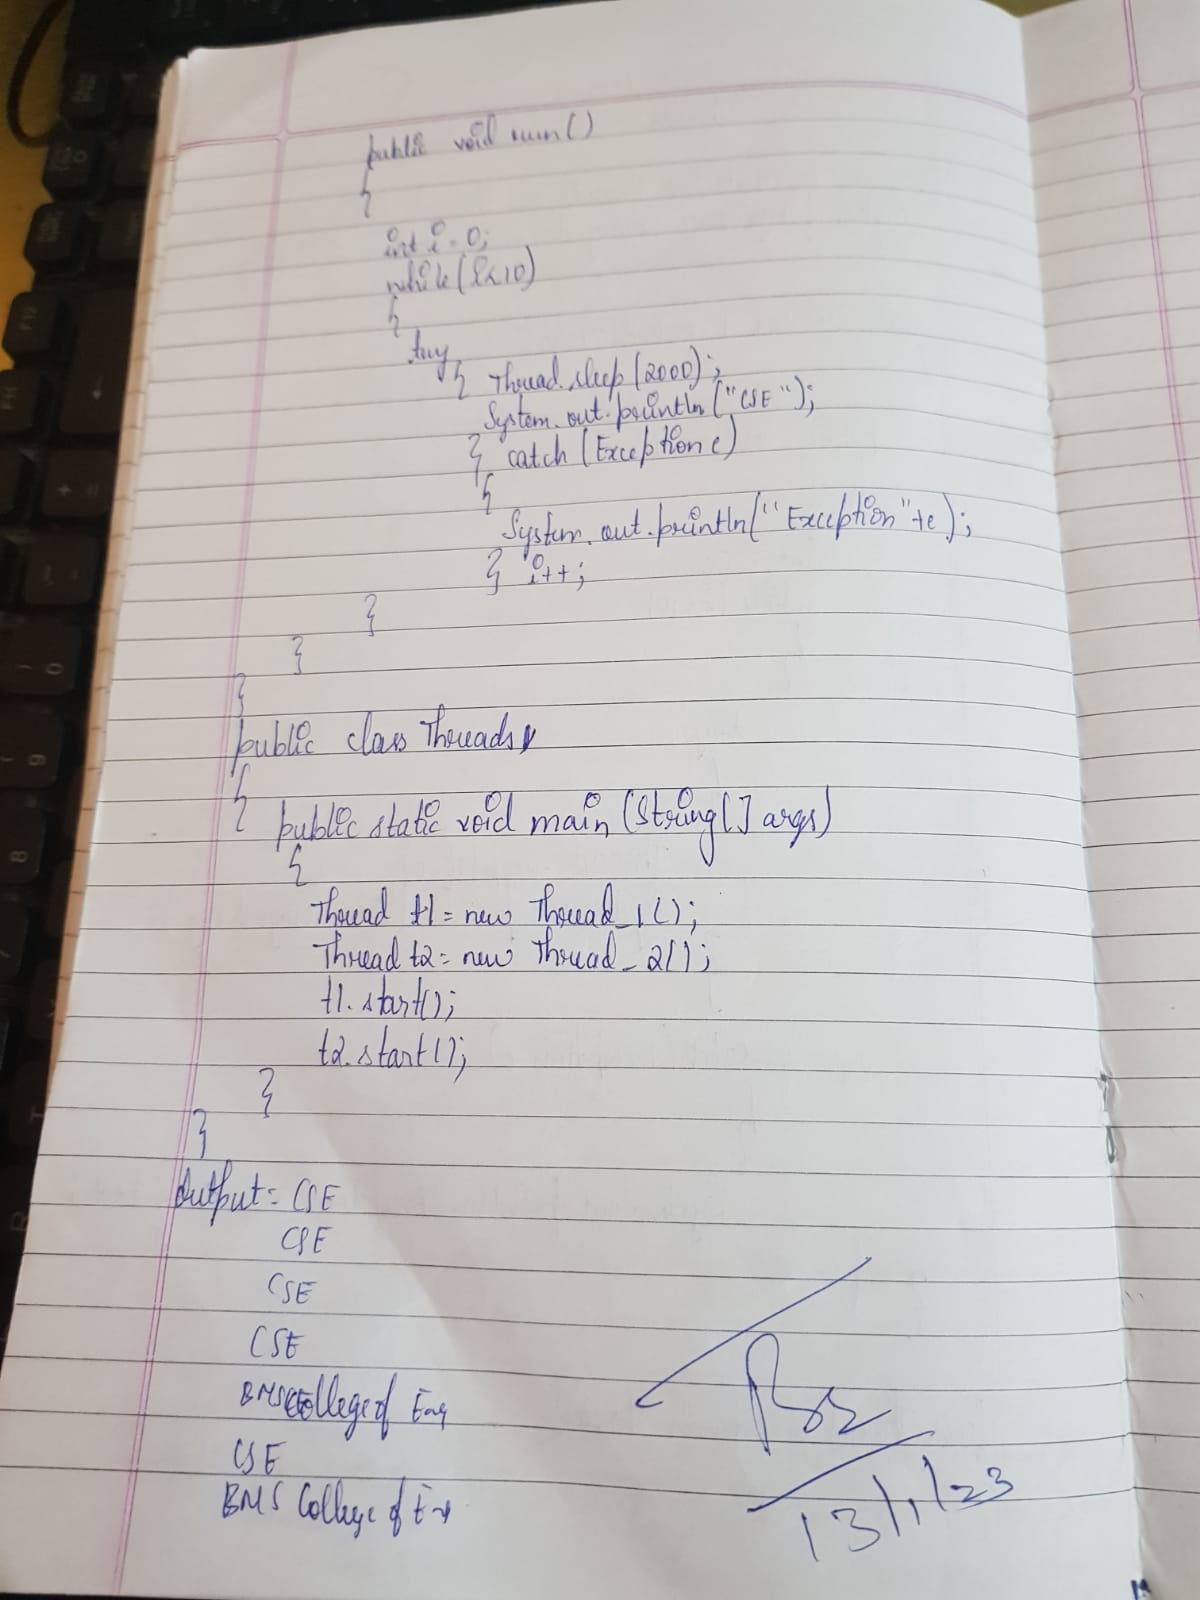 public void run()
{
int i=0;
while(i<10)
{
try
{ Thread.sleep(2000);
System.out.println("CSE");
} catch(Exception e)
{
System.out.println("Exception"+e);
} i++;
}
}
}
public class Threads
{
public static void main(String[] args)
{
Thread t1 = new Thread_1();
Thread t2 = new Thread_2();
t1.start();
t2.start();
}
}
Output= CSE
CSE
CSE
CSE
BMS College of Eng
CSE
BMS College of
13/1/23